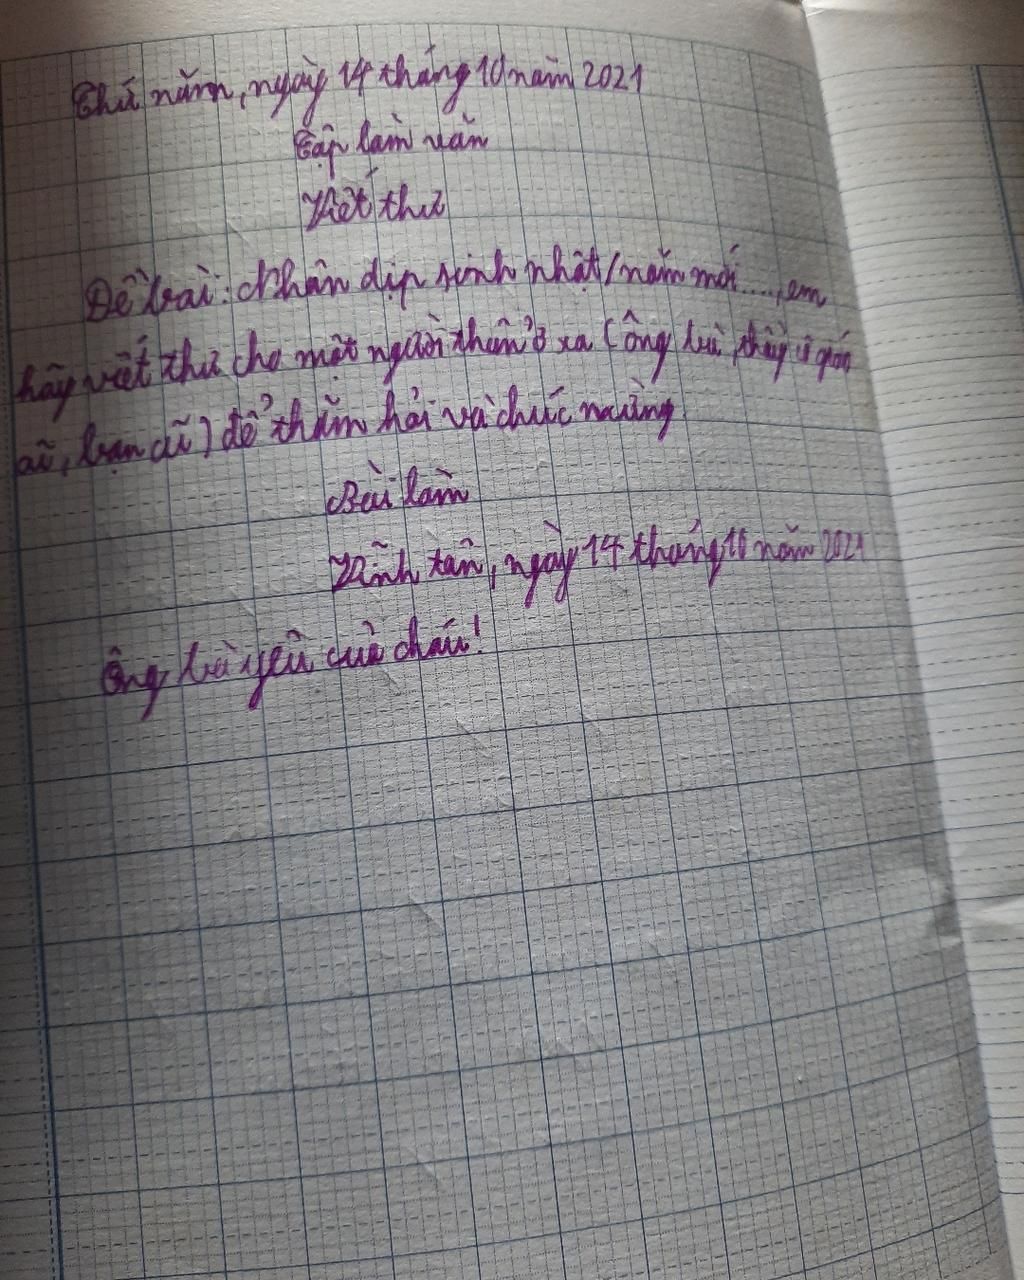 Thứ năm, ngày 14 tháng 10 năm 2021
Tập làm văn
Viết thư
Đề bài: Nhân dịp sinh nhật/năm mới...., em
hãy viết thư cho một người thân ở xa (ông bà, thầy cô giáo
cũ, bạn cũ) để thăm hỏi và chúc mừng
Bài làm
Vĩnh tân, ngày 14 tháng 10 năm 2021
Ông bà yêu của cháu!